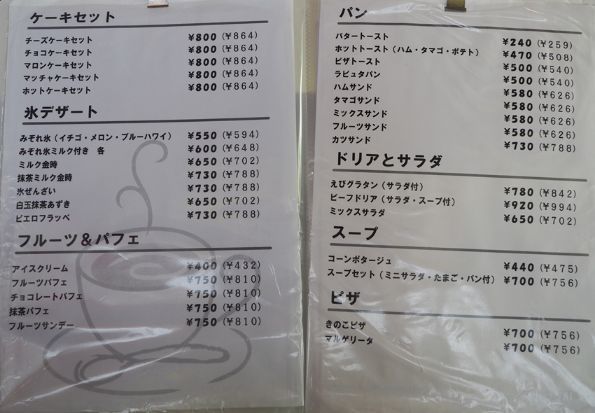 ケーキセット
チーズケーキセット ¥800 (¥864)
チョコケーキセット ¥800 (¥864)
マロンケーキセット ¥800 (¥864)
マッチャケーキセット ¥800 (¥864)
ホットケーキセット ¥800 (¥864)
氷デザート
みぞれ氷(イチゴ・メロン・ブルーハワイ) ¥550 (¥594)
みぞれ氷ミルク付き 各 ¥600 (¥648)
ミルク金時 ¥650 (¥702)
抹茶ミルク金時 ¥730 (¥788)
氷ぜんざい ¥730 (¥788)
白玉抹茶あずき ¥650 (¥702)
ピエロフラッペ ¥730 (¥788)
フルーツ&パフェ
アイスクリーム ¥400 (¥432)
フルーツパフェ ¥750 (¥810)
チョコレートパフェ ¥750 (¥810)
抹茶パフェ ¥750 (¥810)
フルーツサンデー ¥750 (¥810)
パン
バタートースト ¥240 (¥259)
ホットトースト(ハム・タマゴ・ポテト) ¥470 (¥508)
ピザトースト ¥500 (¥540)
ラピュタパン ¥500 (¥540)
ハムサンド ¥580 (¥626)
タマゴサンド ¥580 (¥626)
ミックスサンド ¥580 (¥626)
フルーツサンド ¥580 (¥626)
カツサンド ¥730 (¥788)
ドリアとサラダ
えびグラタン(サラダ付) ¥780 (¥842)
ビーフドリア(サラダ・スープ付) ¥920 (¥994)
ミックスサラダ ¥650 (¥702)
スープ
コーンポタージュ ¥440 (¥475)
スープセット(ミニサラダ・たまご・パン付) ¥700 (¥756)
ピザ
きのこピザ ¥700 (¥756)
マルゲリータ ¥700 (¥756)